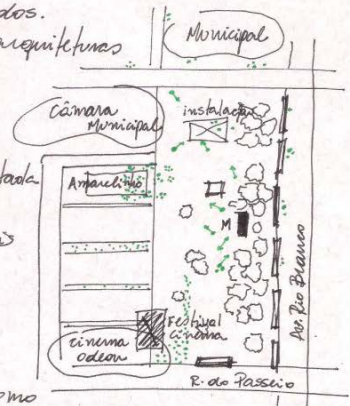 dos.
arquiteturas
Municipal
Câmara
Municipal
instalação
Amarelinho
M
Av. Rio Branco
Festival
Cinema
cinema
Odeon
R. do Passeio
omo